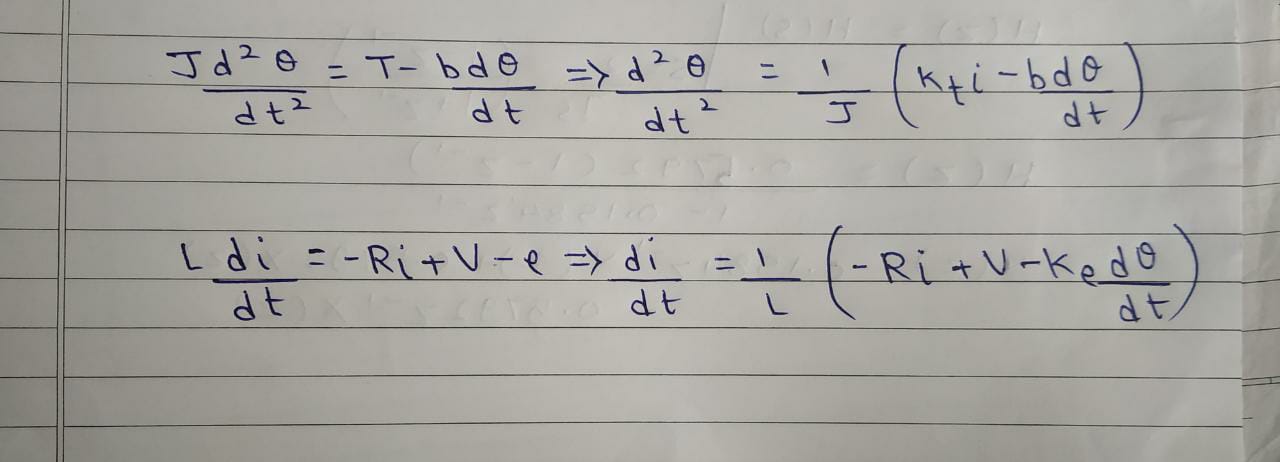 J d²θ/dt² = T - b dθ/dt => d²θ/dt² = 1/J (K_t i - b dθ/dt)
L di/dt = -Ri + V - e => di/dt = 1/L (-Ri + V - K_e dθ/dt)